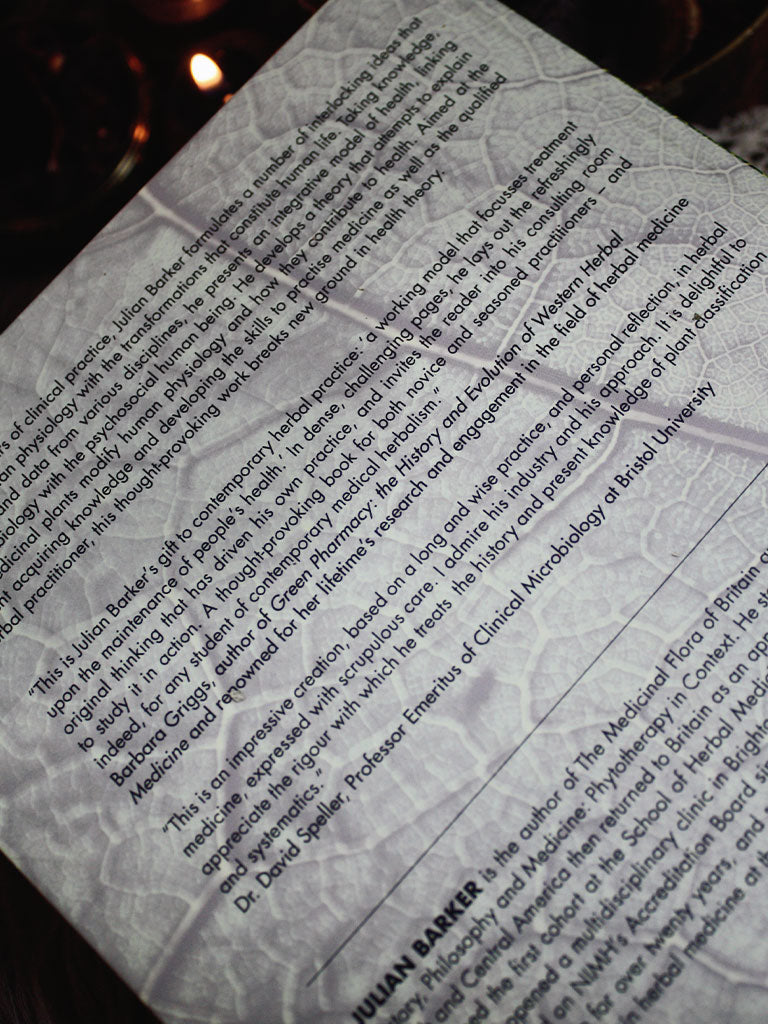 rs of clinical practice, Julian Barker formulates a number of interlocking ideas that
an physiology with the transformations that constitute human life. Taking knowledge,
nd data from various disciplines, he presents an integrative model of health, linking
siology with the psychosocial human being. He develops a theory that attempts to explain
edicinal plants modify human physiology and how they contribute to health. Aimed at the
nt acquiring knowledge and developing the skills to practise medicine as well as the qualified
rbal practitioner, this thought-provoking work breaks new ground in health theory.
"This is Julian Barker's gift to contemporary herbal practice: 'a working model that focusses treatment
upon the maintenance of people's health.' In dense, challenging pages, he lays out the refreshingly
original thinking that has driven his own practice, and invites the reader into his consulting room
to study it in action. A thought-provoking book for both novice and seasoned practitioners – and
indeed, for any student of contemporary medical herbalism."
Barbara Griggs, author of Green Pharmacy: the History and Evolution of Western Herbal
Medicine and renowned for her lifetime's research and engagement in the field of herbal medicine
"This is an impressive creation, based on a long and wise practice, and personal reflection, in herbal
medicine, expressed with scrupulous care. I admire his industry and his approach. It is delightful to
appreciate the rigour with which he treats the history and present knowledge of plant classification
and systematics."
Dr. David Speller, Professor Emeritus of Clinical Microbiology at Bristol University
JULIAN BARKER is the author of The Medicinal Flora of Britain a
tory, Philosophy and Medicine: Phytotherapy in Context. He st
and Central America then returned to Britain as an app
ed the first cohort at the School of Herbal Medic
opened a multidisciplinary clinic in Brighto
on NIMH's Accreditation Board si
for over twenty years, and
in herbal medicine at th